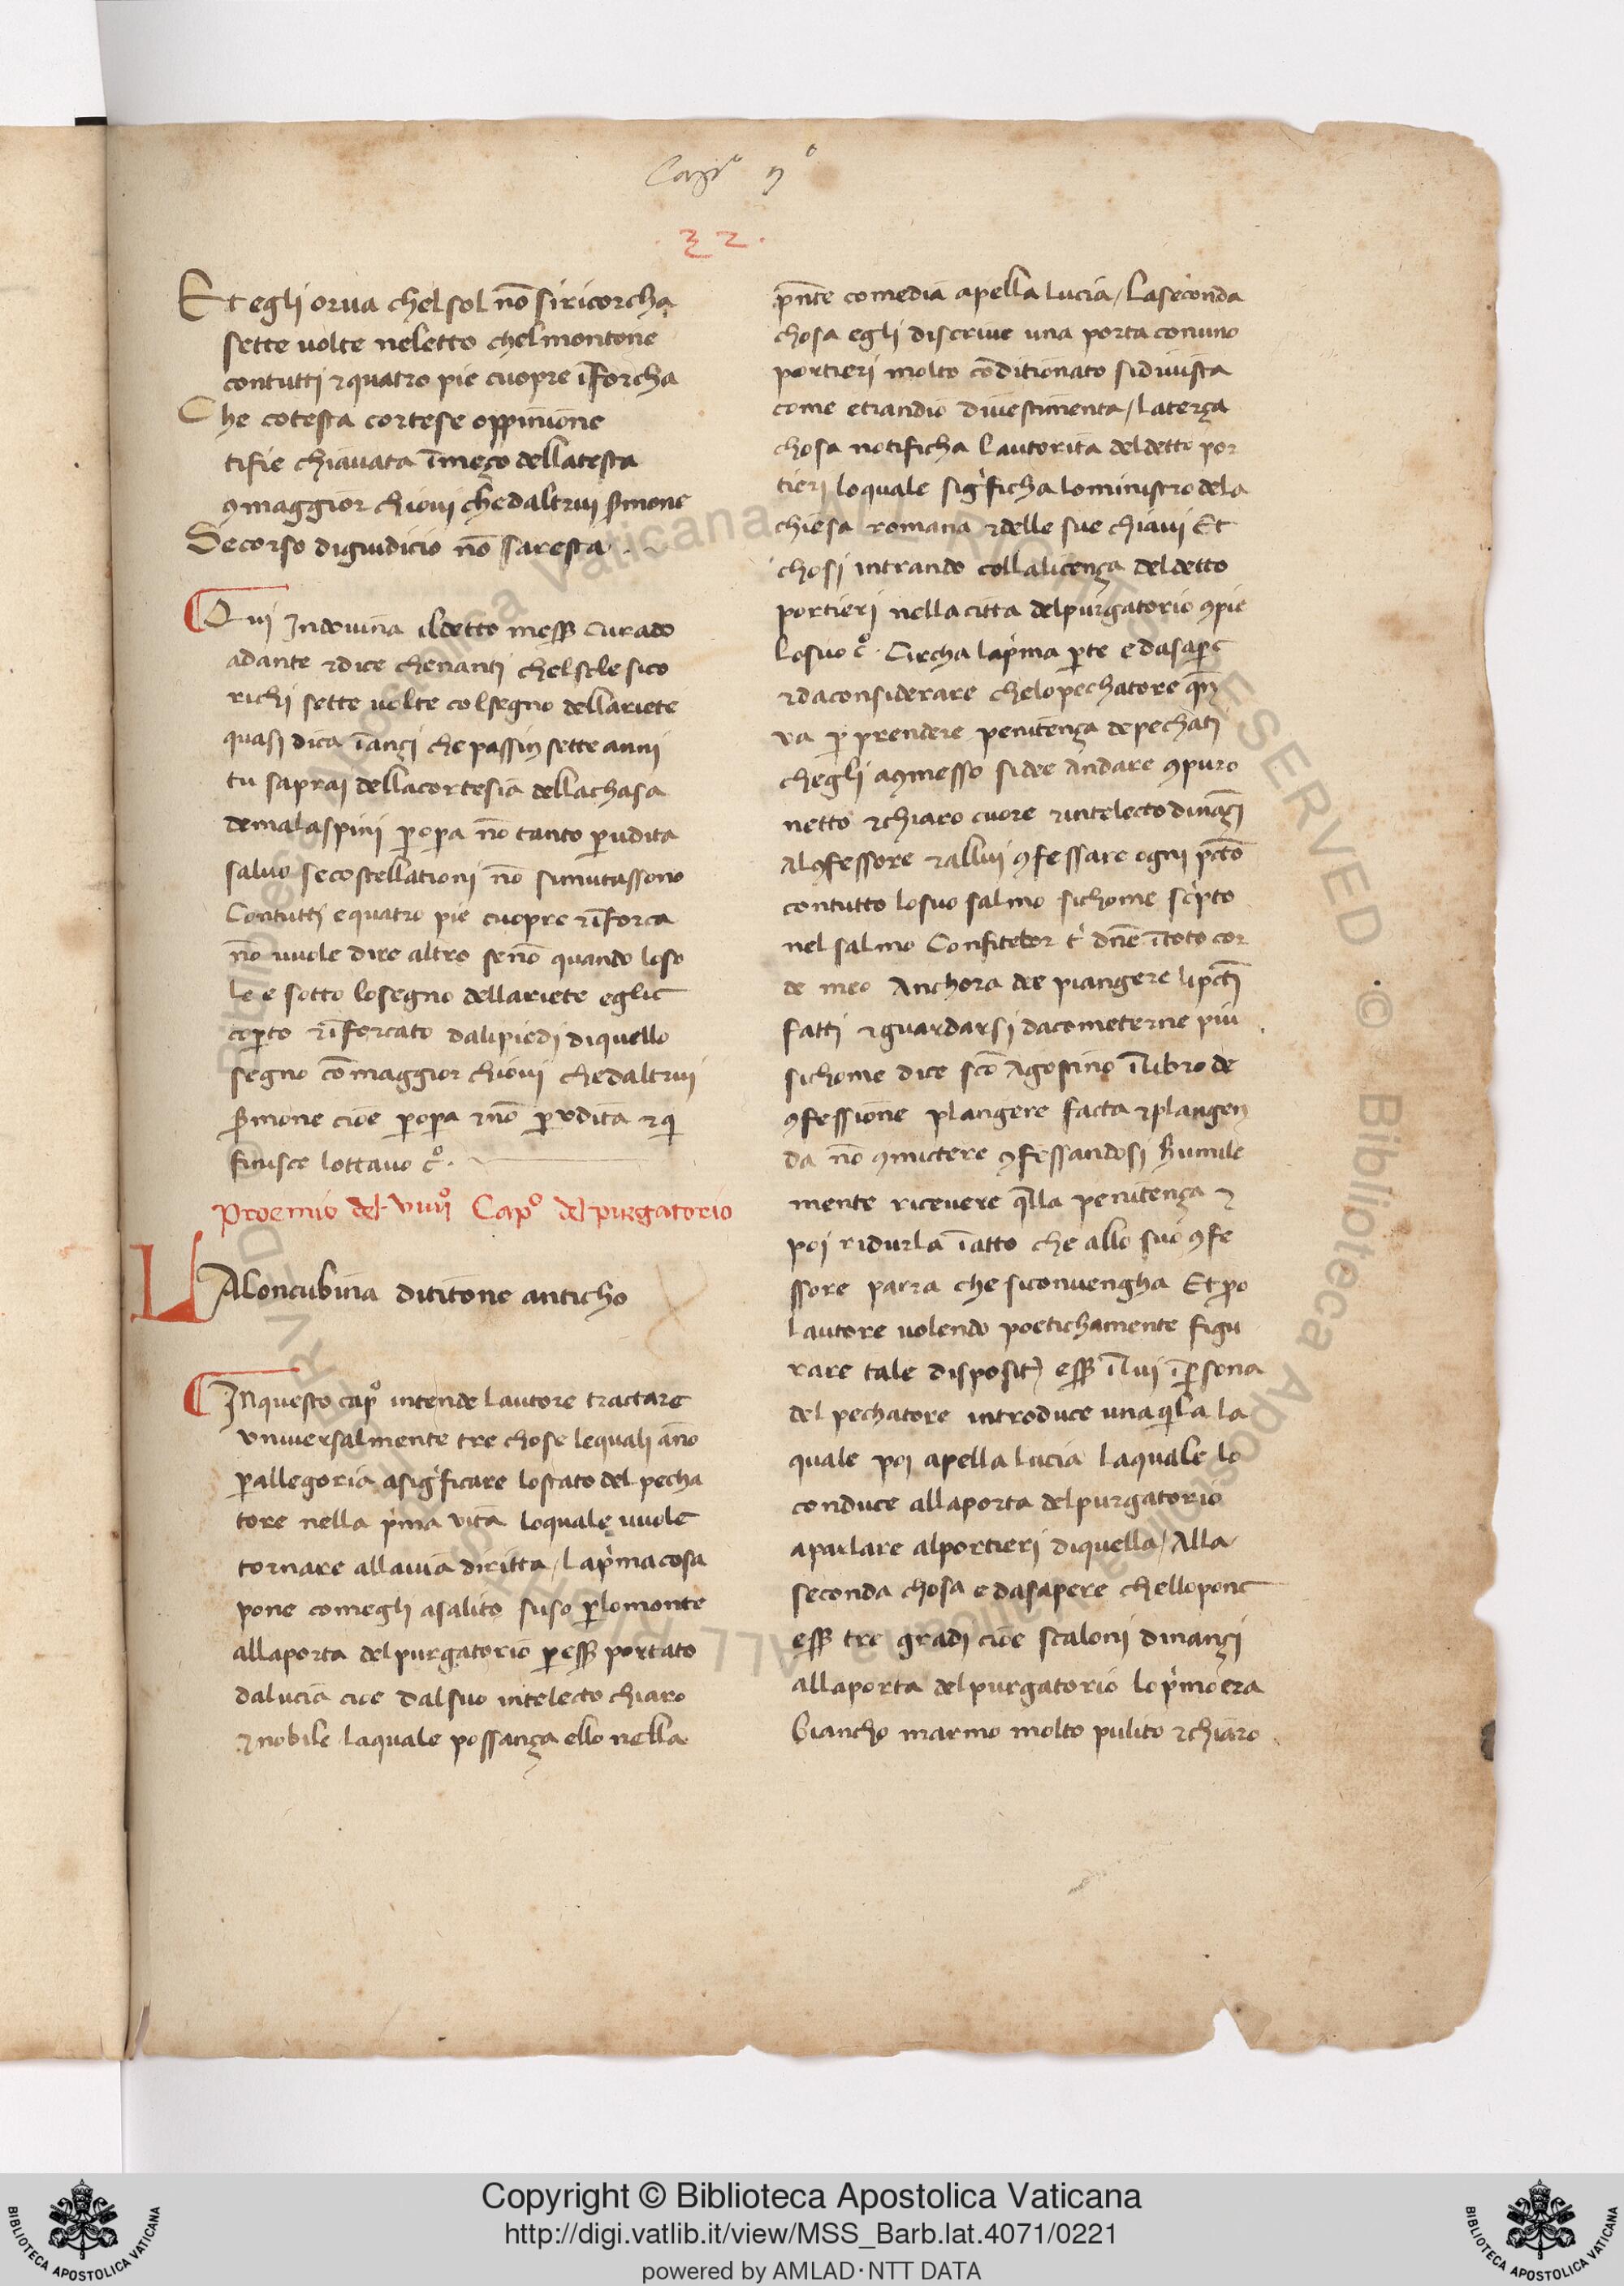 Capº 9º
.32.
Et egli or va chel sol nō si ricorcha
sette volte neletto chel montone
con tutti ⁊ quatro pie cuopre īforcha
Che cotesta cortese oppinione
ti fie chiavata ī meço della testa
ꝯ maggior chiovi che daltrui s̄mone
Se corso di giudicio nō saresta
Qui Indovina il detto mess̄ Curado
a dante ⁊ dice chenanti chel sole si co
richi sette volte col segno dellariete
quasi dica īançi che passin sette anni
tu saprai della cortesia della chasa
de malaspini ꝑ opa nō tanto ꝑ udita
salvo se costellationi nō si mutassono
Con tutti e quatro pie cuopre ⁊ īforca
nō vuole dire altro se nō quando lo so
le e sotto lo segno dellariete egli e
coꝑto ⁊ īforcato da li piedi di quello
segno cō maggior chiovi che daltrui
s̄mone cioe ꝑ opa ⁊ nō ꝑ udita ⁊ q̄
finisce lottavo cº.
Proemio del viiijº Capº del purgatorio
LA Concubina di titone anticho
In questo capº intende lautore tractare
universalmente tre chose le quali āno
ꝑ allegoria a sigͥficare lo stato del pecha
tore nella pͥma vita lo quale vuole
tornare alla via diritta / la pͥma cosa
pone comegli a salito suso ꝑ lo monte
alla porta del purgatorio ꝑ ess̄ portato
da lucia cioe dal suo intelecto chiaro
⁊ nobile la quale possança ello nella
pn̄te comedia apella lucia / La seconda
chosa egli discrive una porta con uno
portieri molto cōditionato si di vista
come etiandio di vestimenta / la terça
chosa notificha lautorita del detto por
tieri lo quale sigͥficha lo ministro dela
chiesa romana ⁊ delle sue chiavi Et
chosi intrando colla licença del detto
portieri nella citta del purgatorio ꝯpie
lo suo cº. Circha la pͥma ꝑte e da saꝑe
⁊ da considerare che lo pechatore qn̄
va ꝑ prendere penitença de pechati
chegli a ꝯmesso si dee andare ꝯ puro
netto ⁊ chiaro cuore ⁊ intelecto dināçi
al ꝯfessore ⁊ a llui ꝯfessare ogni pctō
con tutto lo suo salmo sichome scͥpto
nel salmo Confitebor tͥ dn̄e ī toto cor
de meo Anchora dee piangere li pctī
fatti ⁊ guardarsi da cometerne piu
sichome dice scō Agostino ī libro de
ꝯfessione plangere facta ⁊ plangen
da nō ꝯmictere ꝯfessandosi humile
mente ricevere q̄lla penitença ⁊
poi ridurla ī atto che allo suo ꝯfe
ssore parra che si convengha Et ꝑo
lautore volendo poetichamente figu
rare tale disposit̄ ess̄ ī lui ī ꝑsona
del pechatore introduce una aq̄la la
quale poi apella lucia la quale lo
conduce alla porta del purgatorio
a parlare al portieri di quella / Alla
seconda chosa e da sapere chello pone
ess̄ tre gradi cioe scaloni dinançi
alla porta del purgatorio lo pͥmo era
biancho marmo molto pulito ⁊ chiaro
Copyright © Biblioteca Apostolica Vaticana
http://digi.vatlib.it/view/MSS_Barb.lat.4071/0221
powered by AMLAD·NTT DATA